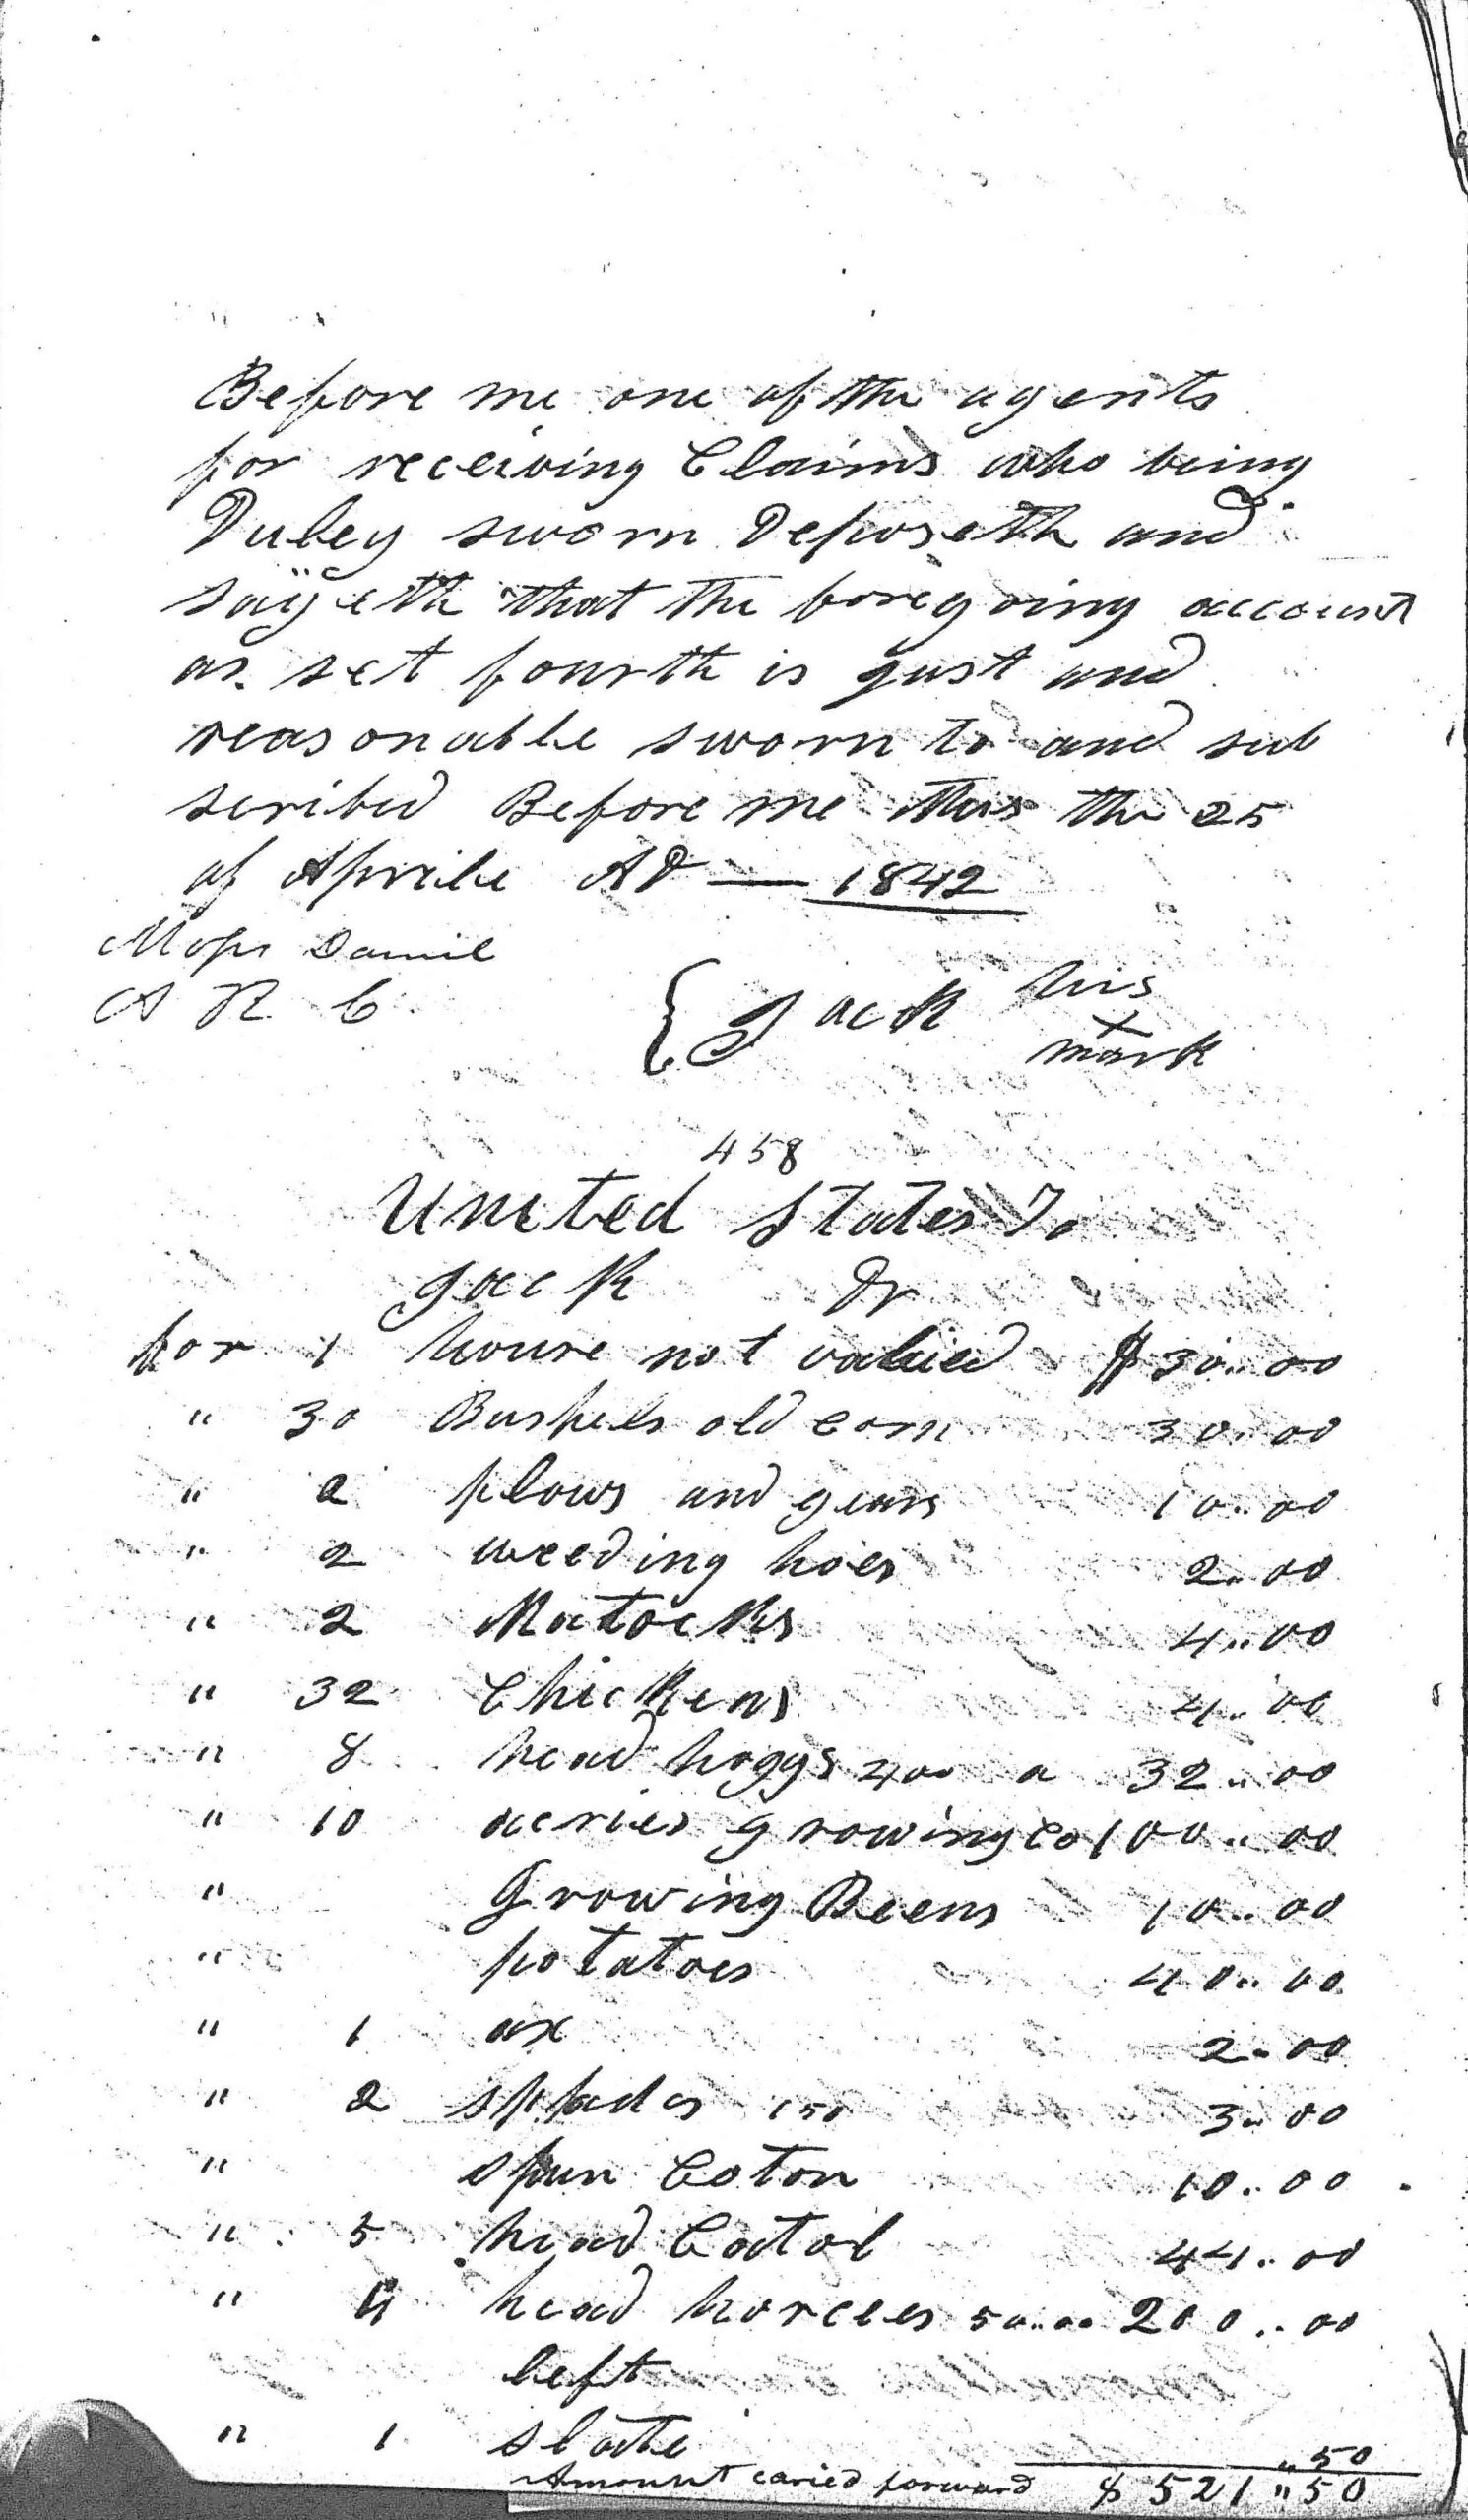 Before me one of the agents
for receiving Claims who being
Duley sworn Deposeth and
sayeth that the foregoing account
as set fourth is gust and
reasonable sworn to and sub
scribed Before me this the 25
of Aprile AD — 1842
Moses Daniel
A R C
{ Jack his
x
mark
458
United States To
Jack Dr
for 1 house not valued $ 30..00
" 30 Bushels old corn 30..00
" 2 plows and gears 10..00
" 2 weeding hoes 2..00
" 2 Matocks 4..00
" 32 Chickens 4..00
" 8 head hoggs 400 a 32..00
" 10 acries growing co 100..00
" Growing Beens 10..00
" potatoes 40..00
" 1 ax 2..00
" 2 spades 150 3..00
" spun Coton 10..00
" 5 head Catol 44..00
" 4 head horcees 50..00 200..00
left
" 1 slate ..50
Amount caried forward $ 521"50